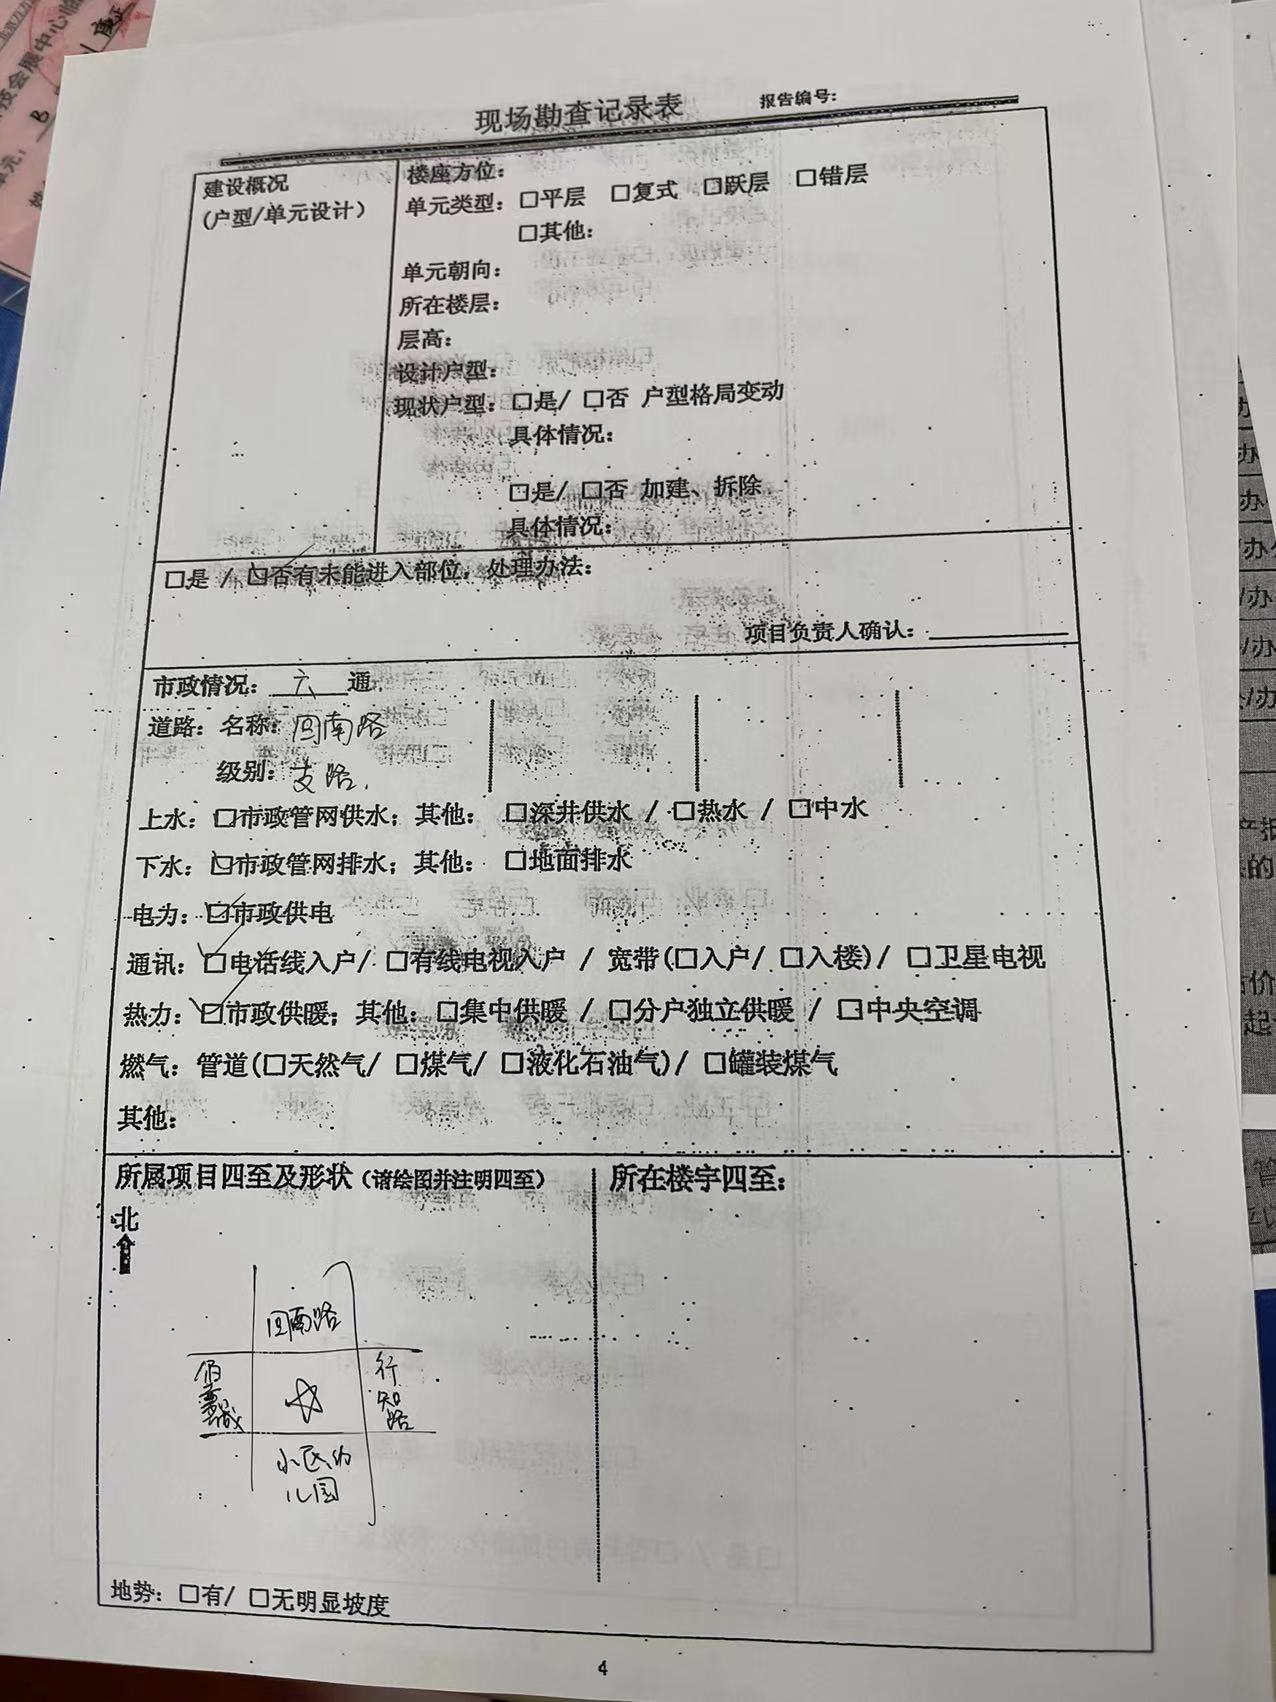 现场勘查记录表 报告编号:
建设概况
(户型/单元设计)
楼座方位:
单元类型: □平层 □复式 □跃层 □错层
□其他:
单元朝向:
所在楼层:
层高:
设计户型:
现状户型: □是/ □否 户型格局变动
具体情况:
□是/ □否 加建、拆除
具体情况:
□是 / ☑否有未能进入部位, 处理办法:
项目负责人确认:
市政情况: 六 通
道路: 名称: 回南路
级别: 支路.
上水: ☑市政管网供水; 其他: □深井供水 / □热水 / □中水
下水: ☑市政管网排水; 其他: □地面排水
电力: ☑市政供电
通讯: ☑电话线入户/ □有线电视入户 / 宽带(□入户/ □入楼)/ □卫星电视
热力: ☑市政供暖; 其他: □集中供暖 / □分户独立供暖 / □中央空调
燃气: 管道(□天然气/ □煤气/ □液化石油气)/ □罐装煤气
其他:
所属项目四至及形状 (请绘图并注明四至)
所在楼宇四至:
北
回南路
行知路
小区幼
儿园
地势: □有/ □无明显坡度
4